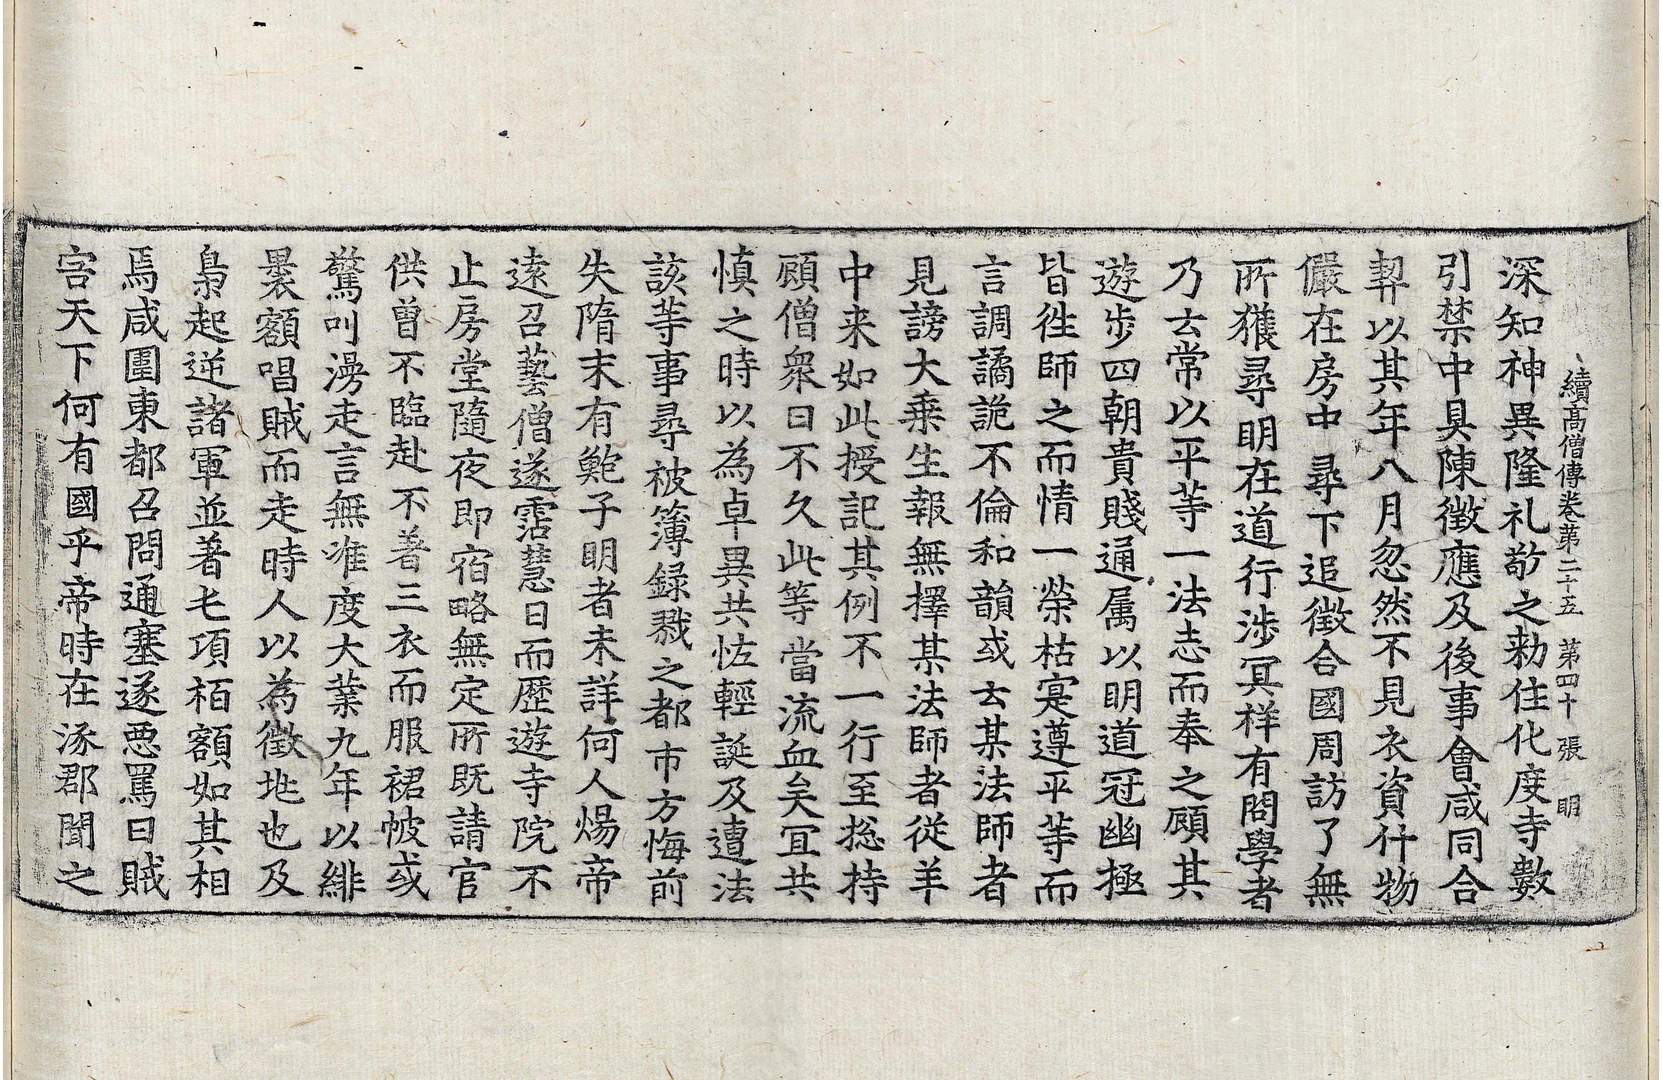 續高僧傳卷第二十五 第四十張 明
深知神異隆礼敬之勑住化度寺數
引禁中具陳徵應及後事會咸同合
契以其年八月忽然不見衣資什物
儼在房中尋下追徵合國周訪了無
所獲尋明在道行涉冥祥有問學者
乃云常以平等一法志而奉之顧其
遊步四朝貴賤通属以明道冠幽極
皆往師之而情一榮枯寔遵平等而
言調譎詭不倫和韻或云某法師者
見謗大乘生報無擇某法師者從羊
中来如此授記其例不一行至捴持
顧僧衆曰不久此等當流血矣冝共
慎之時以為卓異共恠輕誕及遭法
該等事尋被簿録戮之都市方悔前
失隋末有鮑子明者未詳何人煬帝
遠召藝僧遂霑慧日而歷遊寺院不
止房堂隨夜即宿略無定所既請官
供曽不臨赴不著三衣而服裙帔或
驚叫漫走言無准度大業九年以緋
裹額唱賊而走時人以為徵兆也及
梟起逆諸軍並著屯項栢額如其相
焉咸圍東都召問通塞遂惡罵曰賊
害天下何有國乎帝時在涿郡聞之